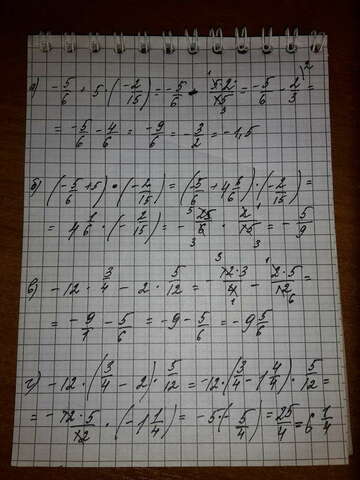 а) -5/6 + 5 · (-2/15) = -5/6 - 5·2/15 = -5/6 - 2/3 =
= -5/6 - 4/6 = -9/6 = -3/2 = -1,5
б) (-5/6 + 5) · (-2/15) = (5/6 + 4 6/6) · (-2/15) =
= 4 1/6 · (-2/15) = -25/6 · 2/15 = -5/9
в) -12 · 3/4 - 2 · 5/12 = -12·3/4 - 2·5/12 =
= -9/1 - 5/6 = -9 - 5/6 = -9 5/6
г) -12 · (3/4 - 2) · 5/12 = -12 · (3/4 - 1 4/4) · 5/12 =
= -12·5/12 · (-1 1/4) = -5 · (-5/4) = 25/4 = 6 1/4